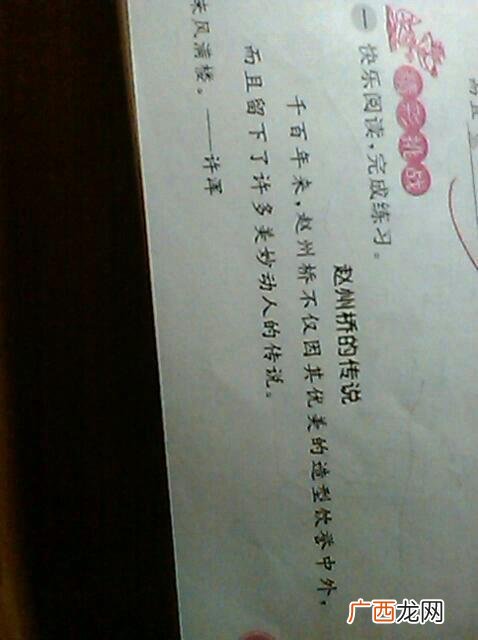 精彩挑战
一 快乐阅读，完成练习。
赵州桥的传说
千百年来，赵州桥不仅因其优美的造型饮誉中外，
而且留下了许多美妙动人的传说。
来风满楼。——许浑
广西龙网